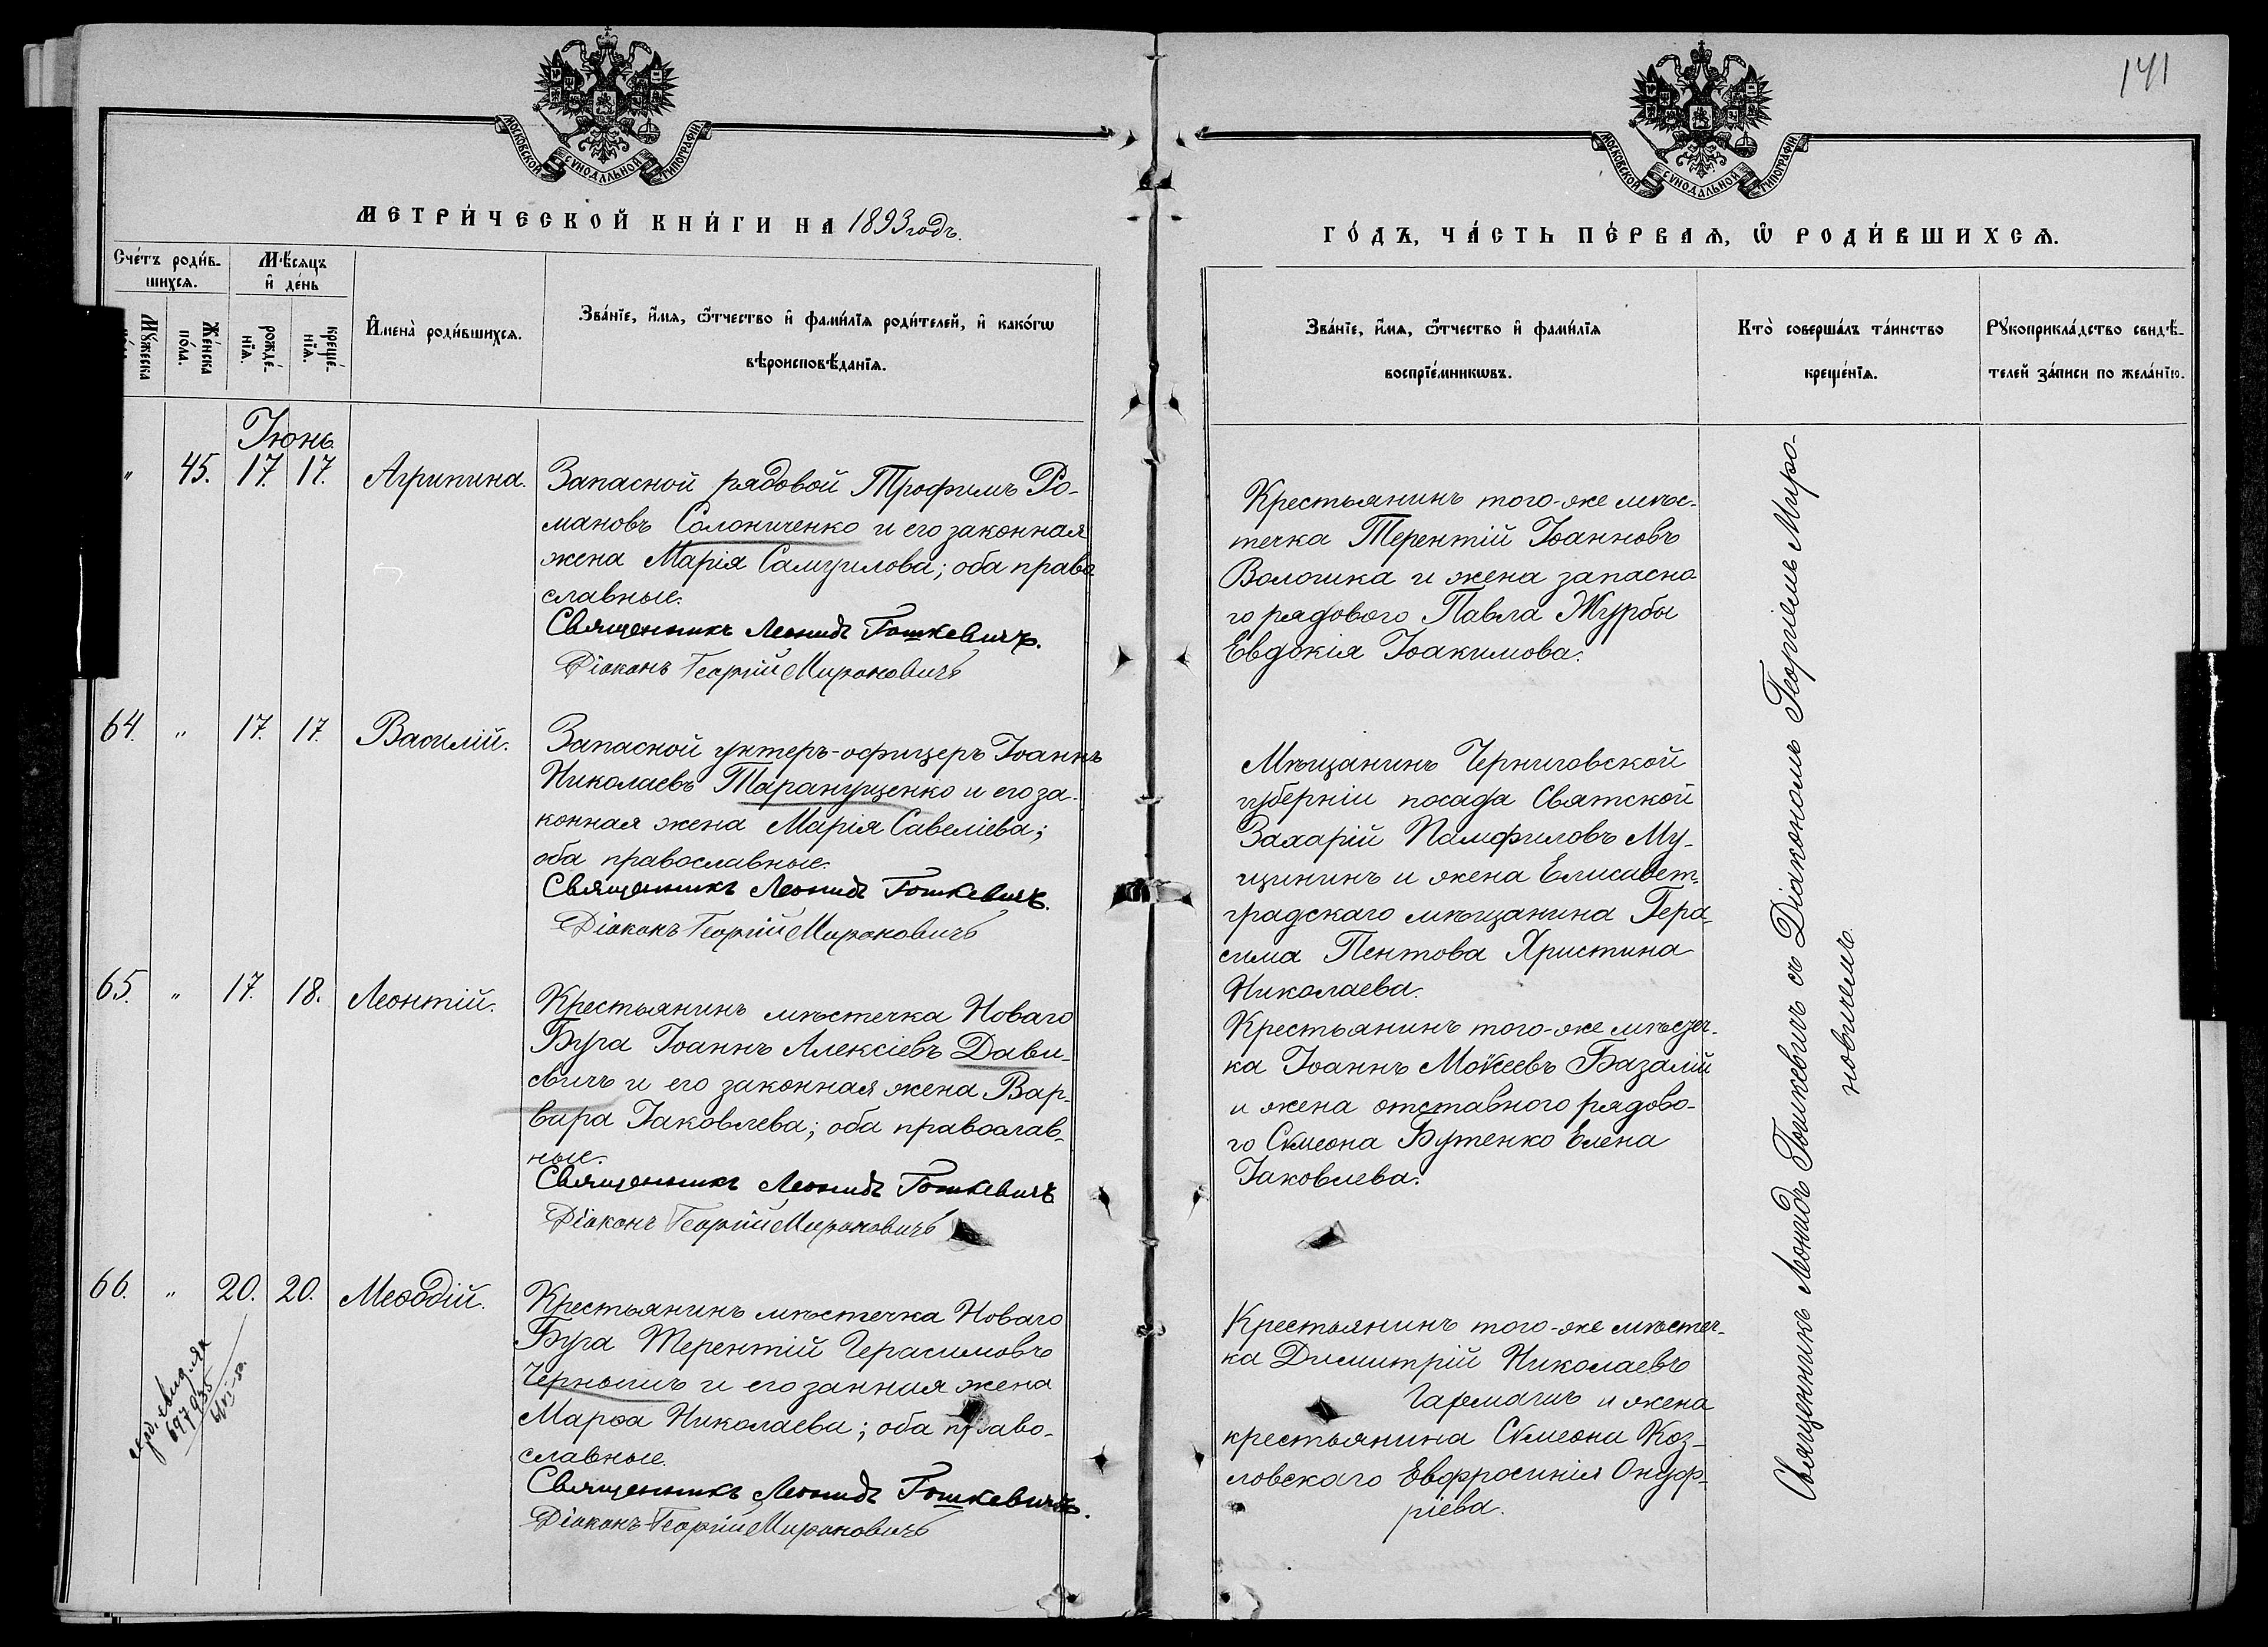 141
МОСКОВСКОЙ СѴНОДАЛЬНОЙ ТИПОГРАФІИ.
МОСКОВСКОЙ СѴНОДАЛЬНОЙ ТИПОГРАФІИ.
МЕТРИ́ЧЕСКОЙ КНИ́ГИ НА 1893 годъ.
ГО́ДЪ, ЧА́СТЬ ПЕ́РВАѦ, Ѽ РОДИ́ВШИХСѦ.
Сче́тъ роди́в-
шихсѧ.
Мѣ́сѧцъ
и҆ де́нь
Мꙋ́жеска
Же́нска
по́ла.
рожде́-
нїѧ.
креще́-
нїѧ.
И҆мена̀ роди́вшихсѧ.
Зва́нїе, и҆́мѧ, ѻ҆́тчество и҆ фами́лїѧ роди́телей, и҆ како́гѡ
вѣроисповѣ́данїѧ.
Зва́нїе, и҆́мѧ, ѻ҆́тчество и҆ фами́лїѧ
воспрїе́мникѡвъ.
Кто̀ соверша́лъ та́инство
креще́нїѧ.
Рꙋкоприкла́дство свидѣ́-
телей за́писи по жела́нїю.
Іюнь.
" 45. 17. 17. Агрипина.
Запасной рядовой Трофимъ Ро-
мановъ Солониченко и его законная
жена Марія Самуилова; оба право
славные.
Священникъ Леонидъ Гошкевичъ.
Діаконъ Георгій Мироновичъ
Крестьянинъ того-же мѣс-
течка Терентій Іоанновъ
Волошка и жена запасно
го рядового Павла Журбы
Евдокія Іоакимова.
64. " 17. 17. Василій.
Запасной унтеръ-офицеръ Іоаннъ
Николаевъ Таранущенко и его за-
конная жена Марія Савеліева;
оба православные.
Священникъ Леонидъ Гошкевичъ.
Діаконъ Георгій Мироновичъ
Мѣщанинъ Черниговской
губерніи посада Святской
Захарій Памфиловъ Му-
щининъ и жена Елисавет-
градскаго мѣщанина Гера-
сима Пентова Христина
Николаева.
65. " 17. 18. Леонтій.
Крестьянинъ мѣстечка Новаго
Буга Іоаннъ Алексіевъ Дави-
свичъ и его законная жена Вар-
вара Іаковлева; оба православ-
ные.
Священникъ Леонидъ Гошкевичъ
Діаконъ Георгій Мироновичъ
Крестьянинъ того-же мѣстеч-
ка Іоаннъ Моѵсеевъ Базалій
и жена отставного рядово-
го Сѵмеона Бутенко Елена
Іаковлева.
66. " 20. 20. Меѳодій.
Крестьянинъ мѣстечка Новаго
Буга Терентій Герасимовъ
Чернышъ и его занная жена
Марѳа Николаева; оба право-
славные.
Священникъ Леонидъ Гошкевичъ.
Діаконъ Георгій Мироновичъ
697935
Крестьянинъ того-же мѣстеч-
ка Димитрій Николаевъ
Гармашъ и жена
крестьянина Сѵмеона Коз-
ловскаго Евфросинія Онуф-
ріева.
Священникъ Леонидъ Гошкевичъ съ Діакономъ Георгіемъ Миро-
новичемъ